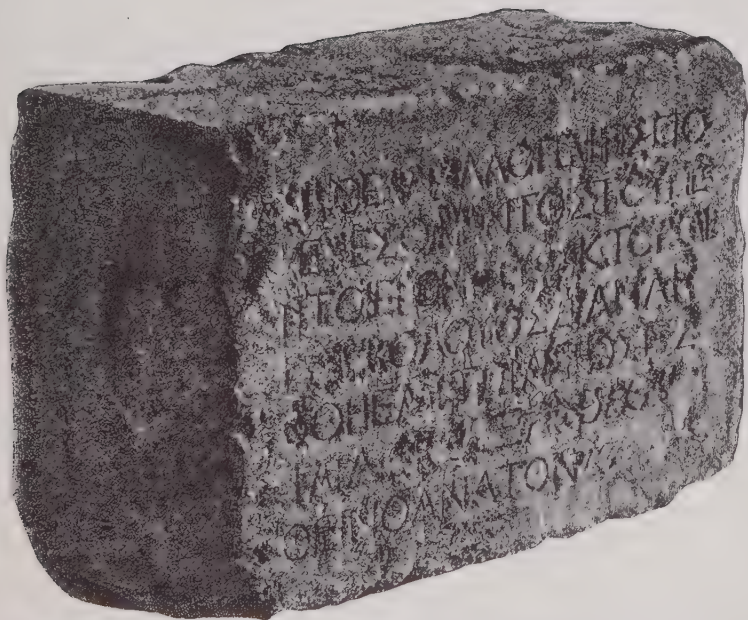 ΜΗΘΕΝΑΑΛΛΟΓΕΝΗΕΙΣΠΟ
ΡΕΥΕΣΘΑΙΕΝΤΟΣΤΟΥΠΕ
ΡΙΤΟΙΕΡΟΝΤΡΥΦΑΚΤΟΥΚΑΙ
ΠΕΡΙΒΟΛΟΥΟΣΔΑΝΛΗ
ΦΘΗΕΑΥΤΩΙΑΙΤΙΟΣΕΣ
ΘΕΙΝΘΑΝΑΤΟΝ